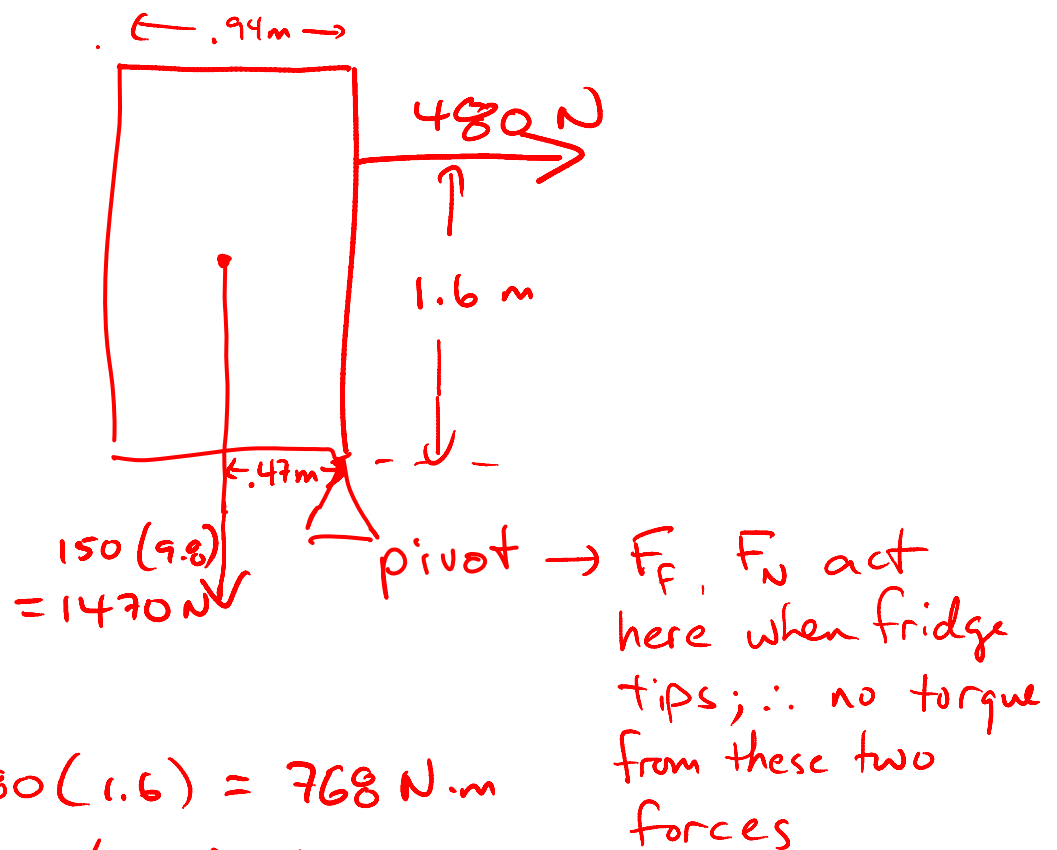 .94m
480 N
1.6 m
.47m
150(9.8)
= 1470 N
pivot → F_F, F_N act
here when fridge
tips; ∴ no torque
from these two
forces
0(1.6) = 768 N·m